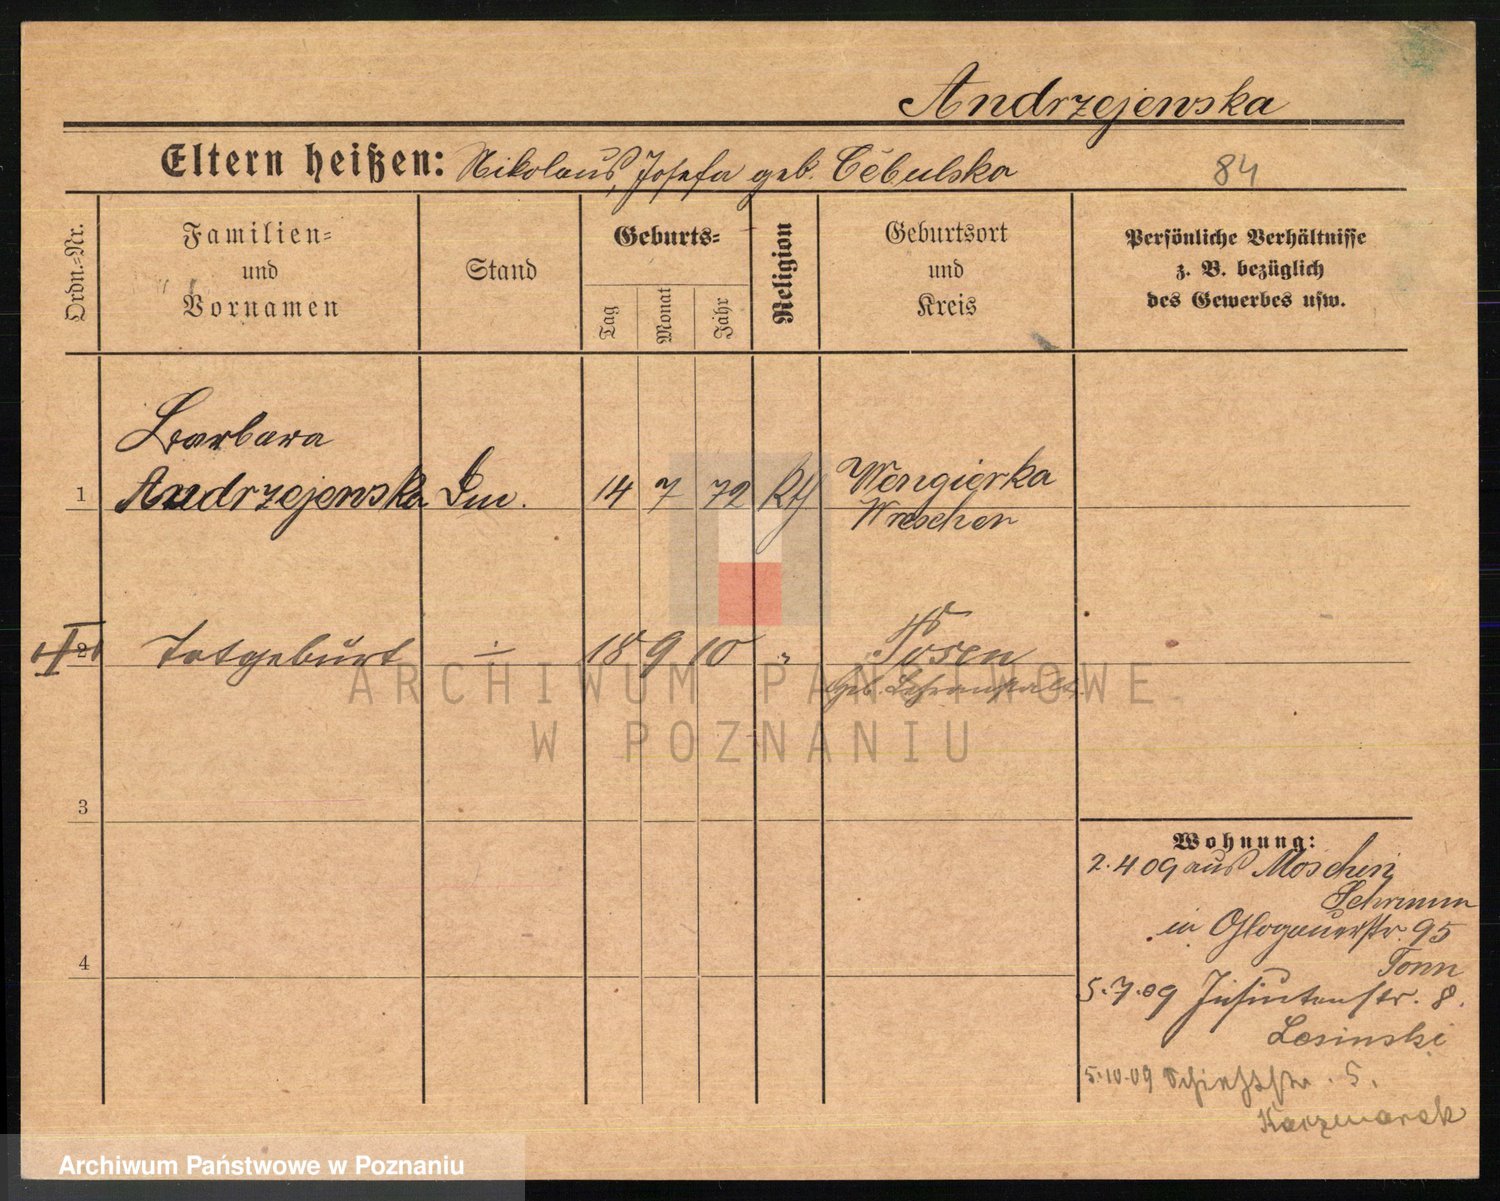 Andrzejewska
Eltern heißen: Nikolaus, Josefa geb. Cebulska
84
Ordn.=Nr.
Familien=
und
Vornamen
Stand
Geburts=
Tag
Monat
Jahr
Religion
Geburtsort
und
Kreis
Persönliche Verhältnisse
z. B. bezüglich
des Gewerbes usw.
Barbara
1 Andrzejewska 14 7 72 Kth Wengierka
Wreschen
2 Totgeburt 18 9 10 " Posen
ARCHIWUM PAŃSTWOWE
W POZNANIU
3
Wohnung:
2.4 09 aus Moschin
Schrimm
in Glogauerstr. 95
Tonn
5.7.09 8.
Lesinski
4
5.10.09 5.
Archiwum Państwowe w Poznaniu